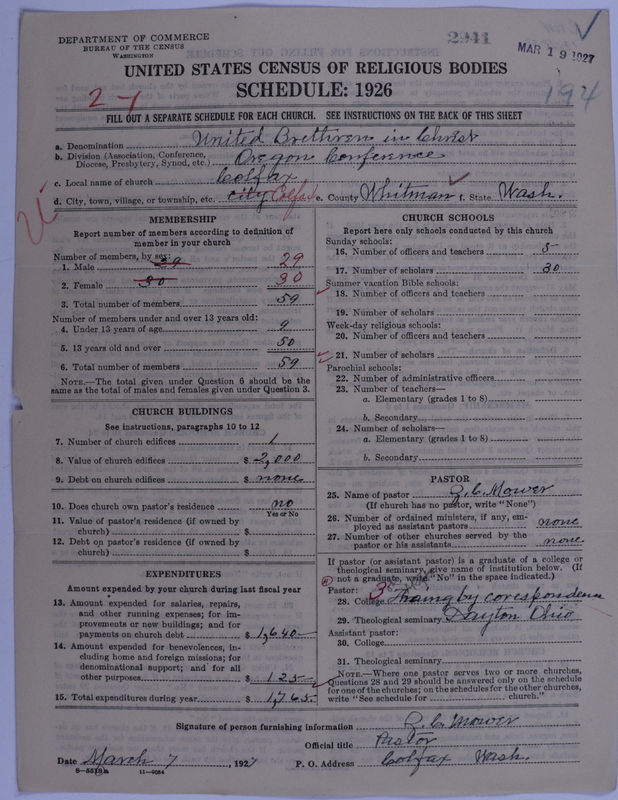 DEPARTMENT OF COMMERCE
BUREAU OF THE CENSUS
WASHINGTON
2941
MAR 19 1927
194
UNITED STATES CENSUS OF RELIGIOUS BODIES
SCHEDULE: 1926
2
FILL OUT A SEPARATE SCHEDULE FOR EACH CHURCH. SEE INSTRUCTIONS ON THE BACK OF THIS SHEET
a. Denomination United Brethren in Christ
b. Division (Association, Conference, Diocese, Presbytery, Synod, etc.) Oregon Conference
c. Local name of church Colfax
d. City, town, village, or township, etc. city Colfax e. County Whitman f. State Wash.
MEMBERSHIP
Report number of members according to definition of member in your church
Number of members, by sex:
1. Male 29 29
2. Female 30 30
3. Total number of members 59
Number of members under and over 13 years old:
4. Under 13 years of age 9
5. 13 years old and over 50
6. Total number of members 59
NOTE.—The total given under Question 6 should be the same as the total of males and females given under Question 3.
CHURCH BUILDINGS
See instructions, paragraphs 10 to 12
7. Number of church edifices 1
8. Value of church edifices $ 2,000
9. Debt on church edifices $ none
10. Does church own pastor's residence no
Yes or No
11. Value of pastor's residence (if owned by church) $
12. Debt on pastor's residence (if owned by church) $
EXPENDITURES
Amount expended by your church during last fiscal year
13. Amount expended for salaries, repairs, and other running expenses; for improvements or new buildings; and for payments on church debt $ 1,640
14. Amount expended for benevolences, including home and foreign missions; for denominational support; and for all other purposes $ 125
15. Total expenditures during year $ 1,765
CHURCH SCHOOLS
Report here only schools conducted by this church
Sunday schools:
16. Number of officers and teachers 5
17. Number of scholars 30
Summer vacation Bible schools:
18. Number of officers and teachers
19. Number of scholars
Week-day religious schools:
20. Number of officers and teachers
21. Number of scholars
Parochial schools:
22. Number of administrative officers
23. Number of teachers—
a. Elementary (grades 1 to 8)
b. Secondary
24. Number of scholars—
a. Elementary (grades 1 to 8)
b. Secondary
PASTOR
25. Name of pastor Mower
(If church has no pastor, write "None")
26. Number of ordained ministers, if any, employed as assistant pastors none
27. Number of other churches served by the pastor or his assistants none
If pastor (or assistant pastor) is a graduate of a college or theological seminary, give name of institution below. (If not a graduate, write "No" in the space indicated.)
Pastor: 3
28. College Traing by corespondence
29. Theological seminary Dayton Ohio
Assistant pastor:
30. College
31. Theological seminary
NOTE.—Where one pastor serves two or more churches, Questions 28 and 29 should be answered only on the schedule for one of the churches; on the schedules for the other churches, write "See schedule for church."
Signature of person furnishing information Mower
Official title Pastor
Date March 7, 1927 P. O. Address Colfax Wash.
11—9054